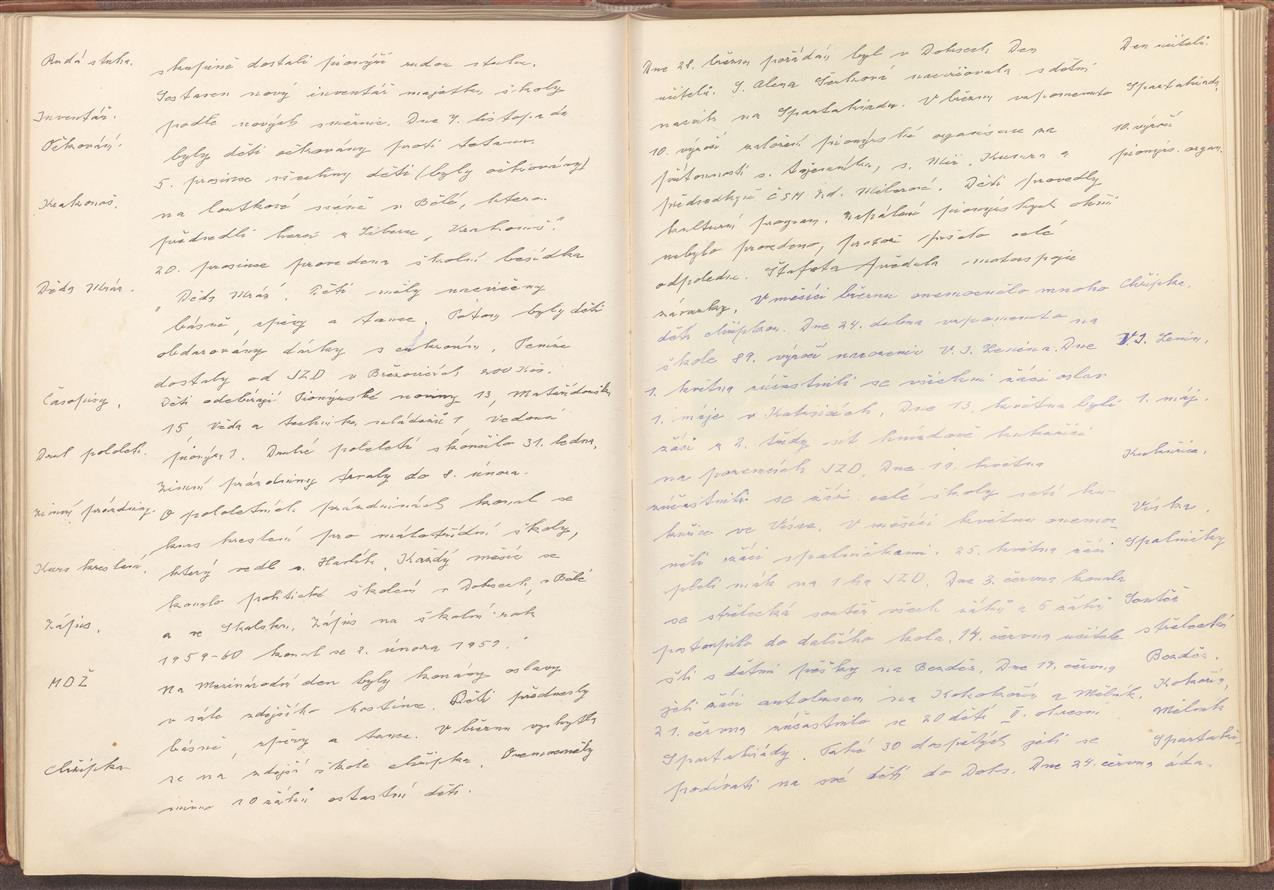 Rudá stuha.
skupině dostali pionýři rudou stuhu.
Sestaven nový inventář majetku školy
Inventář.
podle nových směrnic. Dne 7. listopadu
Očkování.
byly děti očkovány proti tetanu.
5. prosince všechny děti (byly očkovány)
Krakonoš.
na loutkové scéně v Bělé, kterou
předvedli herci z Liberce „Krakonoš“.
20. prosince provedena školní besídka
Děda Mráz.
„Děda Mráz“. Děti měly nacvičeny
básně, zpěvy a tance. Potom byly děti
obdarovány dárky s cukrovím. Peníze
dostaly od JZD v Březovicích 200 Kčs.
Časopisy.
Děti odebírají Pionýrské noviny 13, Mateřídoušku
15 Věda a technika mládeži 1 Vedoucí
Druh. pololetí.
pionýrů 1. Druhé pololetí skončilo 31. ledna,
zimní prázdniny trvaly do 8. února.
Zimní prázdniny.
O pololetních prázdninách konal se
kurs kreslení pro málotřídní školy,
Kurs kreslení.
který vedl s. Havlík. Každý měsíc se
konalo politické školení v Doksech, v Bělé
Zápis.
a ve Skalsku. Zápis na školní rok
1959-60 konal se 2. února 1959.
MDŽ
Na Mezinárodní den byly konány oslavy
v sále zdejšího hostince. Děti přednesly
básně, zpěvy a tance. V březnu vyskytla
Chřipka
se na zdejší škole chřipka. Onemocněly
mimo 10 žáků ostatní děti.
Dne 28. března pořádán byl v Doksech Den
Den učitelů.
učitelů. S. Alena nacvičovala s dětmi
nácvik na Spartakiádu. V březnu vzpomenuto
Spartakiáda.
10. výročí založení pionýrské organisace za
10. výročí
přítomnosti s. tajemníka, s. a
pionýrs. organ.
předsedkyně ČSM Děti provedly
kulturní program. Zapálení pionýrských ohňů
nebylo provedeno, protože pršelo celé
odpoledne. Štafeta předala
závazky. V měsíci březnu onemocnělo mnoho
Chřipka.
dětí chřipkou. Dne 24. dubna vzpomenuto na
škole 89. výročí narození V. I. Lenina. Dne
V. I. Lenin.
1. května zúčastnili se všichni žáci oslav
1. máje v Katusicích. Dne 13. května byli
1. máj.
žáci z 2. třídy sít hnízdově kukuřici
na pozemcích JZD. Dne 19. května
Kukuřice.
zúčastnili se žáci celé školy setí ku-
kuřice ve Vísce. V měsíci květnu onemoc-
Víska.
něli žáci spalničkami. 25. května žáci
Spalničky
pleli mák na 1 ha JZD. Dne 3. června konala
se střelecká soutěž všech žáků a 6 žáků
Soutěž
postoupilo do dalšího kola. 14. června učitelé
střelecká
šli s dětmi pěšky na Bezděz. Dne 19. června
Bezděz.
jeli žáci autobusem na Kokořín a Mělník.
Kokořín,
21. června zúčastnilo se 20 dětí II. okresní
Mělník
Spartakiády. Také 30 dospělých jeli se
Spartaki-
podívati na své děti do Doks. Dne 24. června
áda.